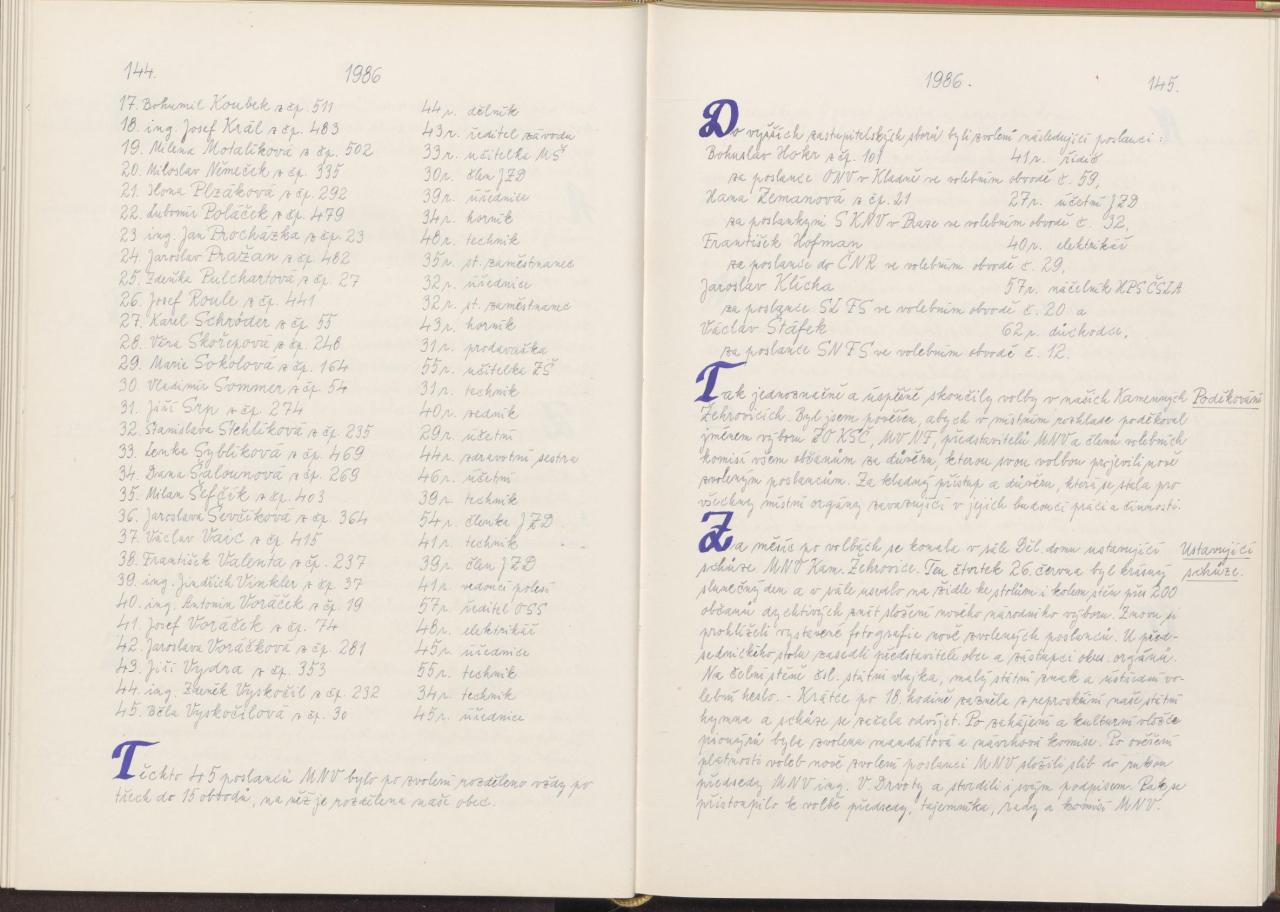 144. 1986
17. Bohumil Koubek z čp. 511 44 r. dělník
18. ing. Josef Král z čp. 483 43 r. ředitel závodu
19. Milena Motalíková z čp. 502 33 r. učitelka MŠ
20. Miloslav Němeček z čp. 335 30 r. člen JZD
21. Ilona Plzáková z čp. 292 39 r. úřednice
22. Lubomír Poláček z čp. 479 34 r. horník
23 ing. Jan Procházka z čp. 23 48 r. technik
24. Jaroslav Pražan z čp. 482 35 r. st. zaměstnanec
25. Zdeňka Pulchartová z čp. 27 32 r. úřednice
26. Josef Roule z čp. 441 32 r. st. zaměstnanec
27. Karel Schröder z čp. 55 43 r. horník
28. Věra Skořepová z čp. 248 31 r. prodavačka
29. Marie Sokolová z čp. 164 55 r. učitelka ZŠ
30. Vladimír Sommer z čp. 54 31 r. technik
31. Jiří Srp z čp. 274 40 r. zedník
32. Stanislava Stehlíková z čp. 235 29 r. účetní
33. Lenka Syblíková z čp. 469 44 r. zdravotní sestra
34. Dana Šalounová z čp. 269 46 r. účetní
35. Milan Šefčík z čp. 403 39 r. technik
36. Jaroslava Ševčíková z čp. 364 54 r. členka JZD
37. Václav Vaic z čp. 415 41 r. technik
38. František Valenta z čp. 237 39 r. člen JZD
39. ing. Jindřich Vinkler z čp. 37 41 r. vedoucí polesí
40. ing. Antonín Voráček z čp. 19 57 r. ředitel OSS
41. Josef Voráček z čp. 74 48 r. elektrikář
42. Jaroslava Voráčková z čp. 281 45 r. úřednice
43. Jiří Vydra z čp. 353 55 r. technik
44. ing. Zdeněk Vyskočil z čp. 232 34 r. technik
45. Běla Vyskočilová z čp. 30 45 r. úřednice
Těchto 45 poslanců MNV bylo po zvolení rozděleno vždy po
třech do 15 obvodů, na něž je rozdělena naše obec.
1986. 145.
Do vyšších zastupitelských sborů byli zvoleni následující poslanci:
Bohuslav Hokr z čp. 101 41 r. řidič
za poslance ONV v Kladně ve volebním obvodě č. 59,
Hana Zemanová z čp. 21 27 r. účetní JZD
za poslankyni SKNV v Praze ve volebním obvodě č. 32,
František Hofman 40 r. elektrikář
za poslance do ČNR ve volebním obvodě č. 29,
Jaroslav Klícha 57 r. náčelník HPS ČSLA
za poslance SL FS ve volebním obvodě č. 20 a
Václav Štáfek 62 r. důchodce,
za poslance SN FS ve volebním obvodě č. 12.
Tak jednoznačně a úspěšně skončily volby v našich Kamenných Poděkování
Žehrovicích. Byl jsem pověřen, abych v místním rozhlase poděkoval
jménem výboru ZO KSČ, MV NF, představitelů MNV a členů volebních
komisí všem občanům za důvěru, kterou svou volbou projevili nově
zvoleným poslancům. Za kladný přístup a důvěru, která se stala pro
všechny místní orgány zavazující v jejich budoucí práci a činnosti.
Za měsíc po volbách se konala v sále Děl. domu ustavující Ustavující
schůze MNV Kam. Žehrovice. Ten čtvrtek 26. června byl krásný schůze.
slunečný den a v sále usedlo na židle ke stolům i kolem stěn přes 200
občanů dychtivých znát složení nového národního výboru. Znovu si
prohlíželi vystavené fotografie nově zvolených poslanců. U před-
sednického stolu zasedli představitelé obce a zástupci okres. orgánů.
Na čelní stěně čsl. státní vlajka, malý státní znak a ústřední vo-
lební heslo. - Krátce po 18. hodině zazněla z reprodukcí naše státní
hymna a schůze se začala odvíjet. Po zahájení a kulturní vložce
pionýrů byla zvolena mandátová a návrhová komise. Po ověření
platnosti voleb nově zvolení poslanci MNV složili slib do rukou
předsedy MNV ing. V. Drvoty a stvrdili i svým podpisem. Pak se
přistoupilo k volbě předsedy, tajemníka, rady a komisí MNV.